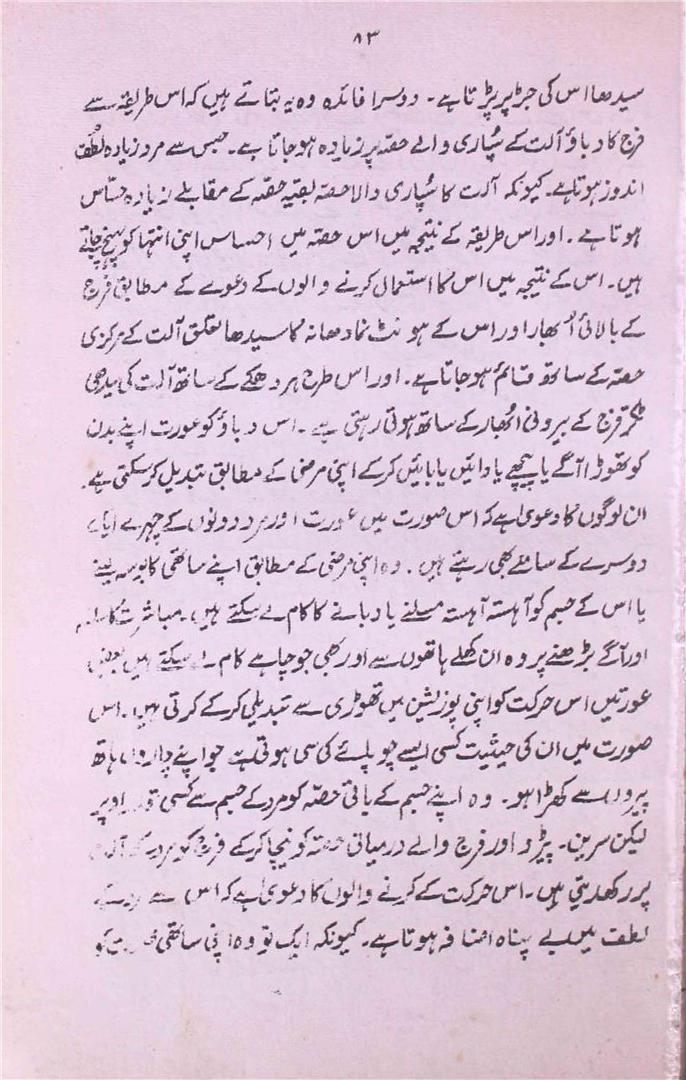 ۸۳
سیدھا اس کی جڑ پر پڑتا ہے۔ دوسرا فائدہ وہ یہ بتاتے ہیں کہ اس طریقہ سے
فرج کا دباؤ آلت کے سُپاری والے حصہ پر زیادہ ہو جاتا ہے۔ جس سے مرد زیادہ لُطف
اندوز ہوتا ہے۔ کیونکہ آلت کا سُپاری والا حصہ بقیہ حصہ کے مقابلے زیادہ حسّاس
ہوتا ہے۔ اور اس طریقہ کے نتیجہ میں اس حصہ میں احساس اپنی انتہا کو پہنچ جاتے
ہیں۔ اس کے نتیجہ میں اس کا استعمال کرنے والوں کے دعوے کے مطابق فرج
کے بالائی اُبھار اور اس کے ہونٹ نما دھانہ کا سیدھا تعلق آلت کے مرکزی
حصہ کے ساتھ قائم ہو جاتا ہے۔ اور اس طرح ہر دھکے کے ساتھ آلت کی سیدھی
ٹکر فرج کے بیرونی اُبھار کے ساتھ ہوتی رہتی ہے۔ اس دباؤ کو عورت اپنے بدن
کو تھوڑا آگے یا پیچھے یا دائیں یا بائیں کر کے اپنی مرضی کے مطابق تبدیل کر سکتی ہے۔
ان لوگوں کا دعویٰ ہے کہ اس صورت میں عورت اور مرد دونوں کے چہرے ایک
دوسرے کے سامنے بھی رہتے ہیں۔ وہ اپنی مرضی کے مطابق اپنے ساتھی کا بوسہ لینے
یا اس کے جسم کو آہستہ آہستہ مسلنے یا دبانے کا کام لے سکتے ہیں۔ مباشرت کا سلسلہ
اور آگے بڑھنے پر وہ ان کھلے ہاتھوں سے اور بھی جو چاہے کام لے سکتے ہیں بعض
عورتیں اس حرکت کو اپنی پوزیشن میں تھوڑی سے تبدیلی کر کے کرتی ہیں۔ اس
صورت میں ان کی حیثیت کسی ایسے چوپائے کی سی ہوتی ہے جو اپنے چاروں ہاتھ
پیروں سے کھڑا ہو۔ وہ اپنے جسم کے باقی حصہ کو مرد کے جسم سے کسی قدر اوپر
لیکن سرین۔ پیڑو اور فرج والے درمیانی حصہ کو نیچا کر کے فرج کو مرد کے آلت
پر رکھ دیتی ہیں۔ اس حرکت کے کرنے والوں کا دعویٰ ہے کہ اس سے
لطف میں بے پناہ اضافہ ہوتا ہے۔ کیونکہ ایک تو وہ اپنی ساتھی عورت کو